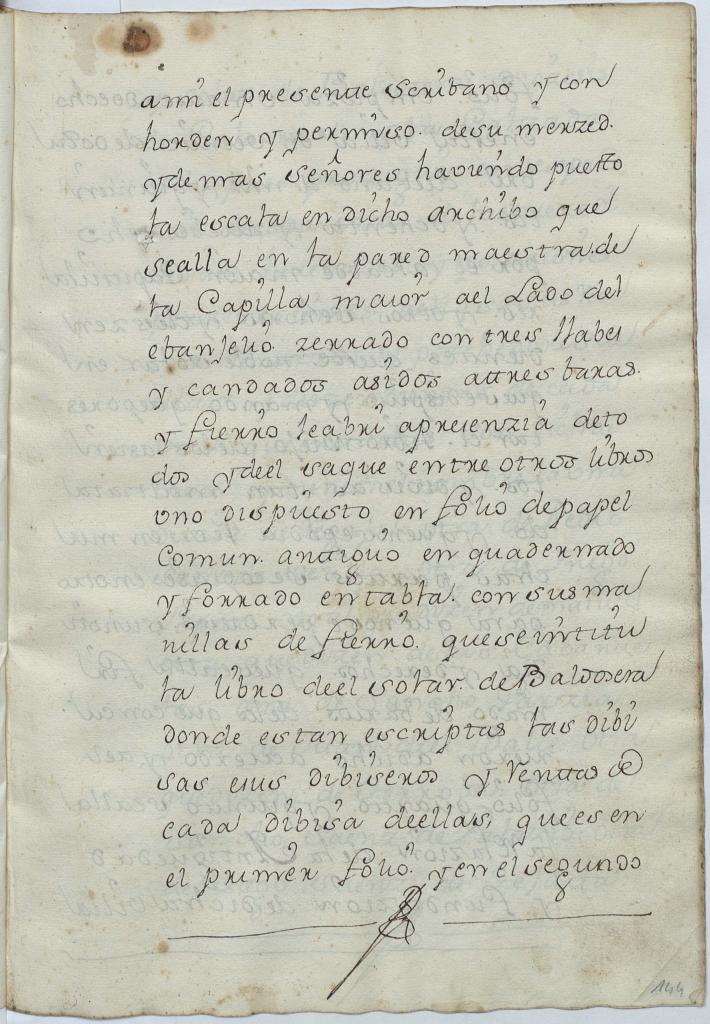 ami el presente scribano y con
horden y permiso. de su merzed.
y demas señores haviendo puesto
la escala en dicho archibo que
sealla en la pared maestra. de
la Capilla maior ael Lado del
ebanjelio. zerrado con tres llabes
y candados asidos attres baras.
y fierro leabri apresenzia deto
dos ydeel saque entre otros libros
uno dispuesto en folio de papel
comun. antiguo en quadernado
y forrado en tabla. con sus ma
nillas de fierro. que se intitu
la libro deel solar. de Baldosera
donde estan escriptas las dibi
sas e sus dibiseros y Venttas de
cada dibisa deellas, que es en
el primer folio. y en el segundo
144